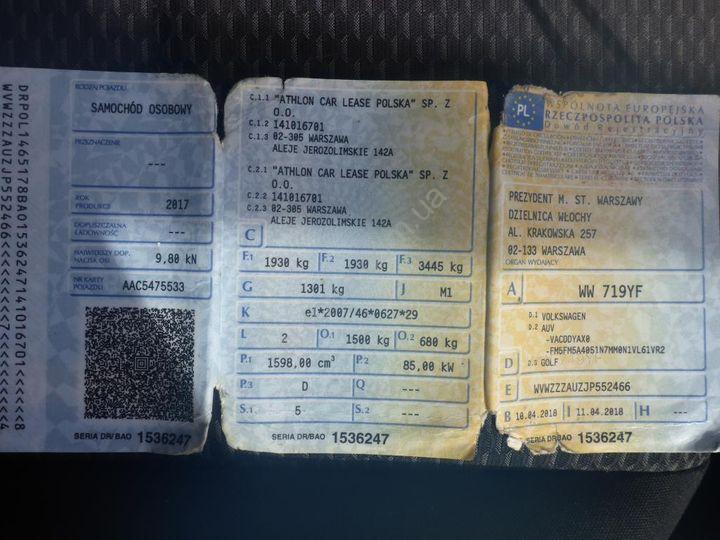 DRPOL1465178BA01536247141016701<<<<<<8
WVWZZZAUZJP552466<<<<<<<
RODZAJ POJAZDU
SAMOCHÓD OSOBOWY
PRZEZNACZENIE
---
ROK PRODUKCJI 2017
DOPUSZCZALNA ŁADOWNOŚĆ ---
NAJWIĘKSZY DOP. NACISK OSI 9,80 kN
NR KARTY POJAZDU AAC5475533
SERIA DR/BAO 1536247
C.1.1 "ATHLON CAR LEASE POLSKA" SP. Z
O.O.
C.1.2 141016701
C.1.3 02-305 WARSZAWA
ALEJE JEROZOLIMSKIE 142A
C.2.1 "ATHLON CAR LEASE POLSKA" SP. Z
O.O.
C.2.2 141016701
C.2.3 02-305 WARSZAWA
ALEJE JEROZOLIMSKIE 142A
C
F.1 1930 kg F.2 1930 kg F.3 3445 kg
G 1301 kg J M1
K e1*2007/46*0627*29
L 2 O.1 1500 kg O.2 680 kg
P.1 1598,00 cm³ P.2 85,00 kW
P.3 D Q ---
S.1 5 S.2 ---
SERIA DR/BAO 1536247
PL
WSPÓLNOTA EUROPEJSKA
RZECZPOSPOLITA POLSKA
Dowód Rejestracyjny
PREZYDENT M. ST. WARSZAWY
DZIELNICA WŁOCHY
AL. KRAKOWSKA 257
02-133 WARSZAWA
ORGAN WYDAJĄCY
A WW 719YF
D.1 VOLKSWAGEN
D.2 AUV
-VACDDYAX0
-FM5FM5A4051N7MM0N1VL61VR2
D D.3 GOLF
E WVWZZZAUZJP552466
B 10.04.2018 I 11.04.2018 H ---
SERIA DR/BAO 1536247